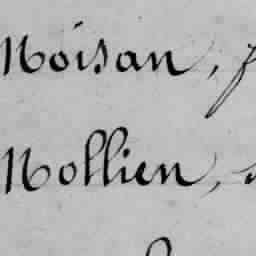 Moisan,
Mollien,